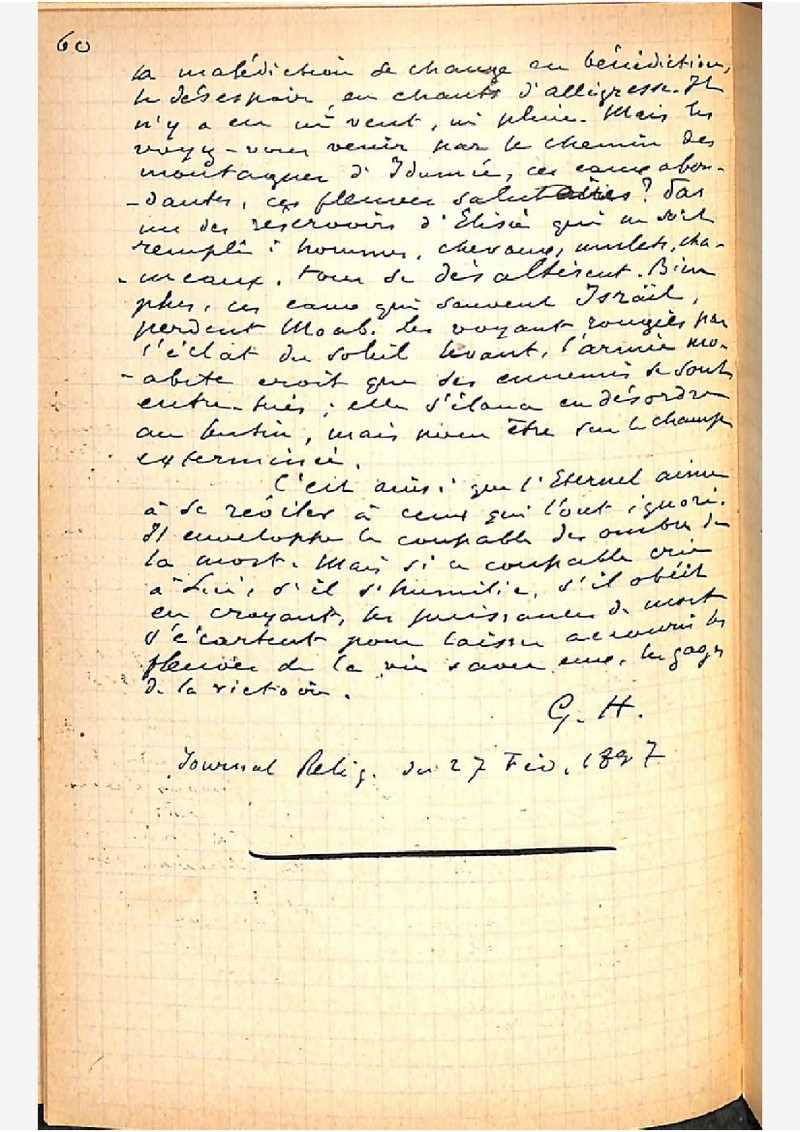 60
la malédiction se change en bénédiction,
le désespoir, en chants d'allégresse. Il
n'y a eu ni vent, ni pluie. Mais les
voyez-vous venir par le chemin des
montagnes d'Idumée, ces eaux abon-
-dantes, ces fleuves salutaires? Pas
un des réservoirs d'Elisée qui ne soit
rempli: hommes, chevaux, mulets, cha-
-meaux, tous se désaltèrent. Bien
plus, ces eaux qui sauvent Israël,
perdent Moab. Les voyant rougies par
l'éclat du soleil levant, l'armée mo-
-abite croit que ses ennemis se sont
entre-tués; elle s'élance en désordre
au butin, mais pour être sur le champ
exterminée.
C'est ainsi que l'Eternel aime
à se révéler à ceux qui l'ont ignoré.
Il enveloppe le coupable des ombres de
la mort. Mais si ce coupable crie
à Lui, s'il s'humilie, s'il obéit
en croyant, les puissances de mort
s'écartent pour laisser accourir les
fleuves de la vie & avec eux, les gages
de la victoire.
G. H.
Journal Relig. du 27 Fév. 1897